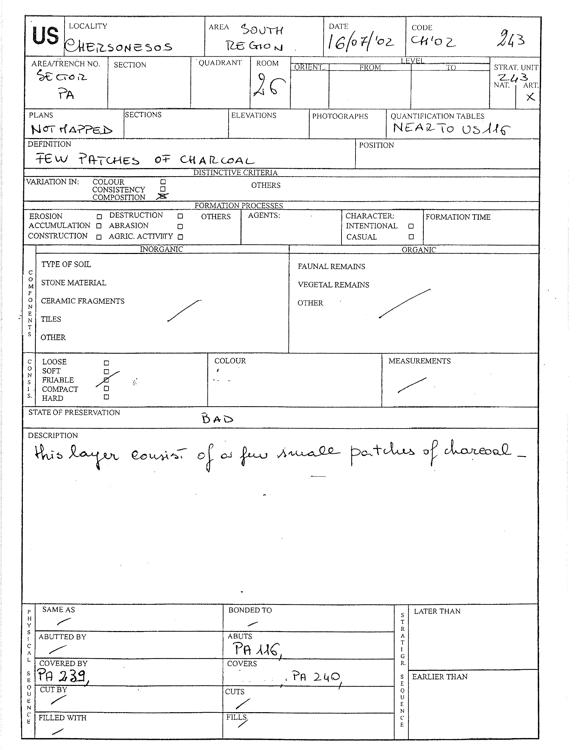 US
LOCALITY
CHERSONESOS
AREA SOUTH
REGION
DATE
16/07/'02
CODE
CH'02 243
AREA/TRENCH NO.
SECTOR
PA
SECTION
QUADRANT
ROOM
26
LEVEL
ORIENT. FROM TO
STRAT. UNIT
243
NAT. ART.
X
PLANS
NOT MAPPED
SECTIONS
ELEVATIONS
PHOTOGRAPHS
QUANTIFICATION TABLES
NEAR TO US 116
DEFINITION
FEW PATCHES OF CHARCOAL
POSITION
DISTINCTIVE CRITERIA
VARIATION IN: COLOUR
CONSISTENCY
COMPOSITION
OTHERS
FORMATION PROCESSES
EROSION DESTRUCTION OTHERS
ACCUMULATION ABRASION
CONSTRUCTION AGRIC. ACTIVITY
AGENTS:
CHARACTER:
INTENTIONAL
CASUAL
FORMATION TIME
COMPONENTS
INORGANIC
TYPE OF SOIL
STONE MATERIAL
CERAMIC FRAGMENTS
TILES
OTHER
ORGANIC
FAUNAL REMAINS
VEGETAL REMAINS
OTHER
CONSIS.
LOOSE
SOFT
FRIABLE
COMPACT
HARD
COLOUR
MEASUREMENTS
STATE OF PRESERVATION
BAD
DESCRIPTION
this layer consist of a few small patches of charcoal _
PHYSICAL SEQUENCE
SAME AS
BONDED TO
ABUTTED BY
ABUTS
PA 116,
COVERED BY
PA 239,
COVERS
PA 240,
CUT BY
CUTS
FILLED WITH
FILLS
STRATIGR. SEQUENCE
LATER THAN
EARLIER THAN